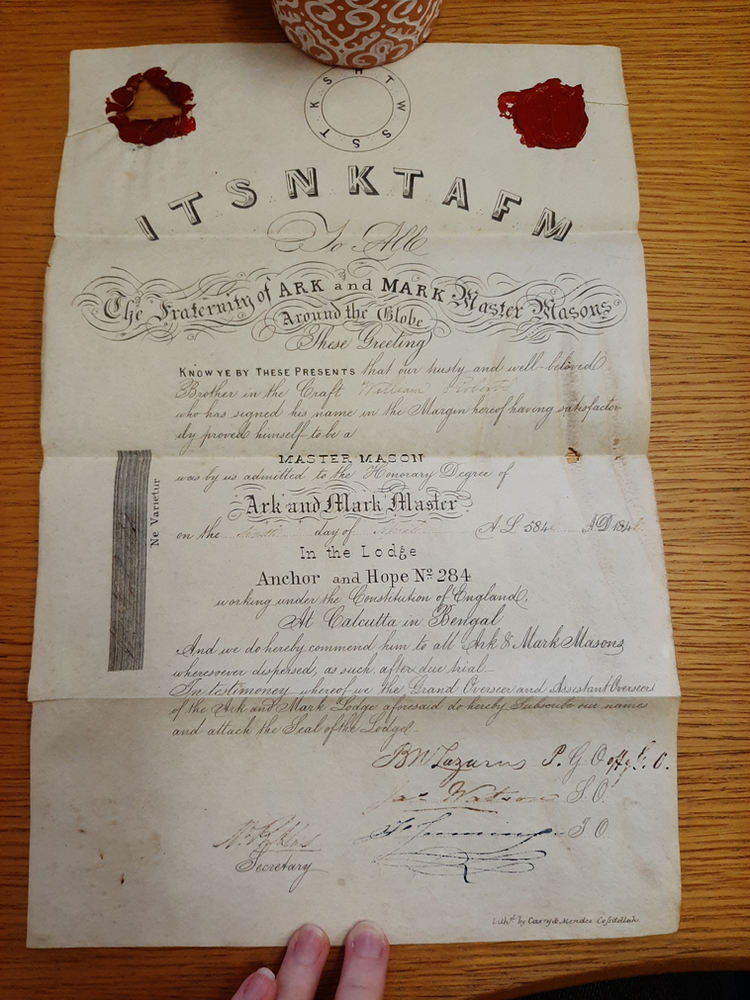 H T W S S T K S
I T S N K T A F M
To All
The Fraternity of ARK and MARK Master Masons
Around the Globe
These Greeting
KNOW YE BY THESE PRESENTS that our trusty and well-beloved
Brother in the Craft William Roberts
who has signed his name in the Margin hereof having satisfactor-
ily proved himself to be a
MASTER MASON
was by us admitted to the Honorary Degree of
Ark and Mark Master
on the day of A L 584 A D 184
In the Lodge
Anchor and Hope No. 284
working under the Constitution of England.
At Calcutta in Bengal
And we do hereby commend him to all Ark & Mark Masons
wheresoever dispersed, as such, after due trial
In testimoney whereof we the Grand Overseer and Assistant Overseers
of the Ark and Mark Lodge aforesaid do hereby Subscribe our names
and attach the Seal of the Lodge
Ne Varietur
BW Lazarus P. G. O offg G. O.
Jas Watson S. O.
J. O.
Secretary
Lithd. by Casey & Mendes Cossitollah